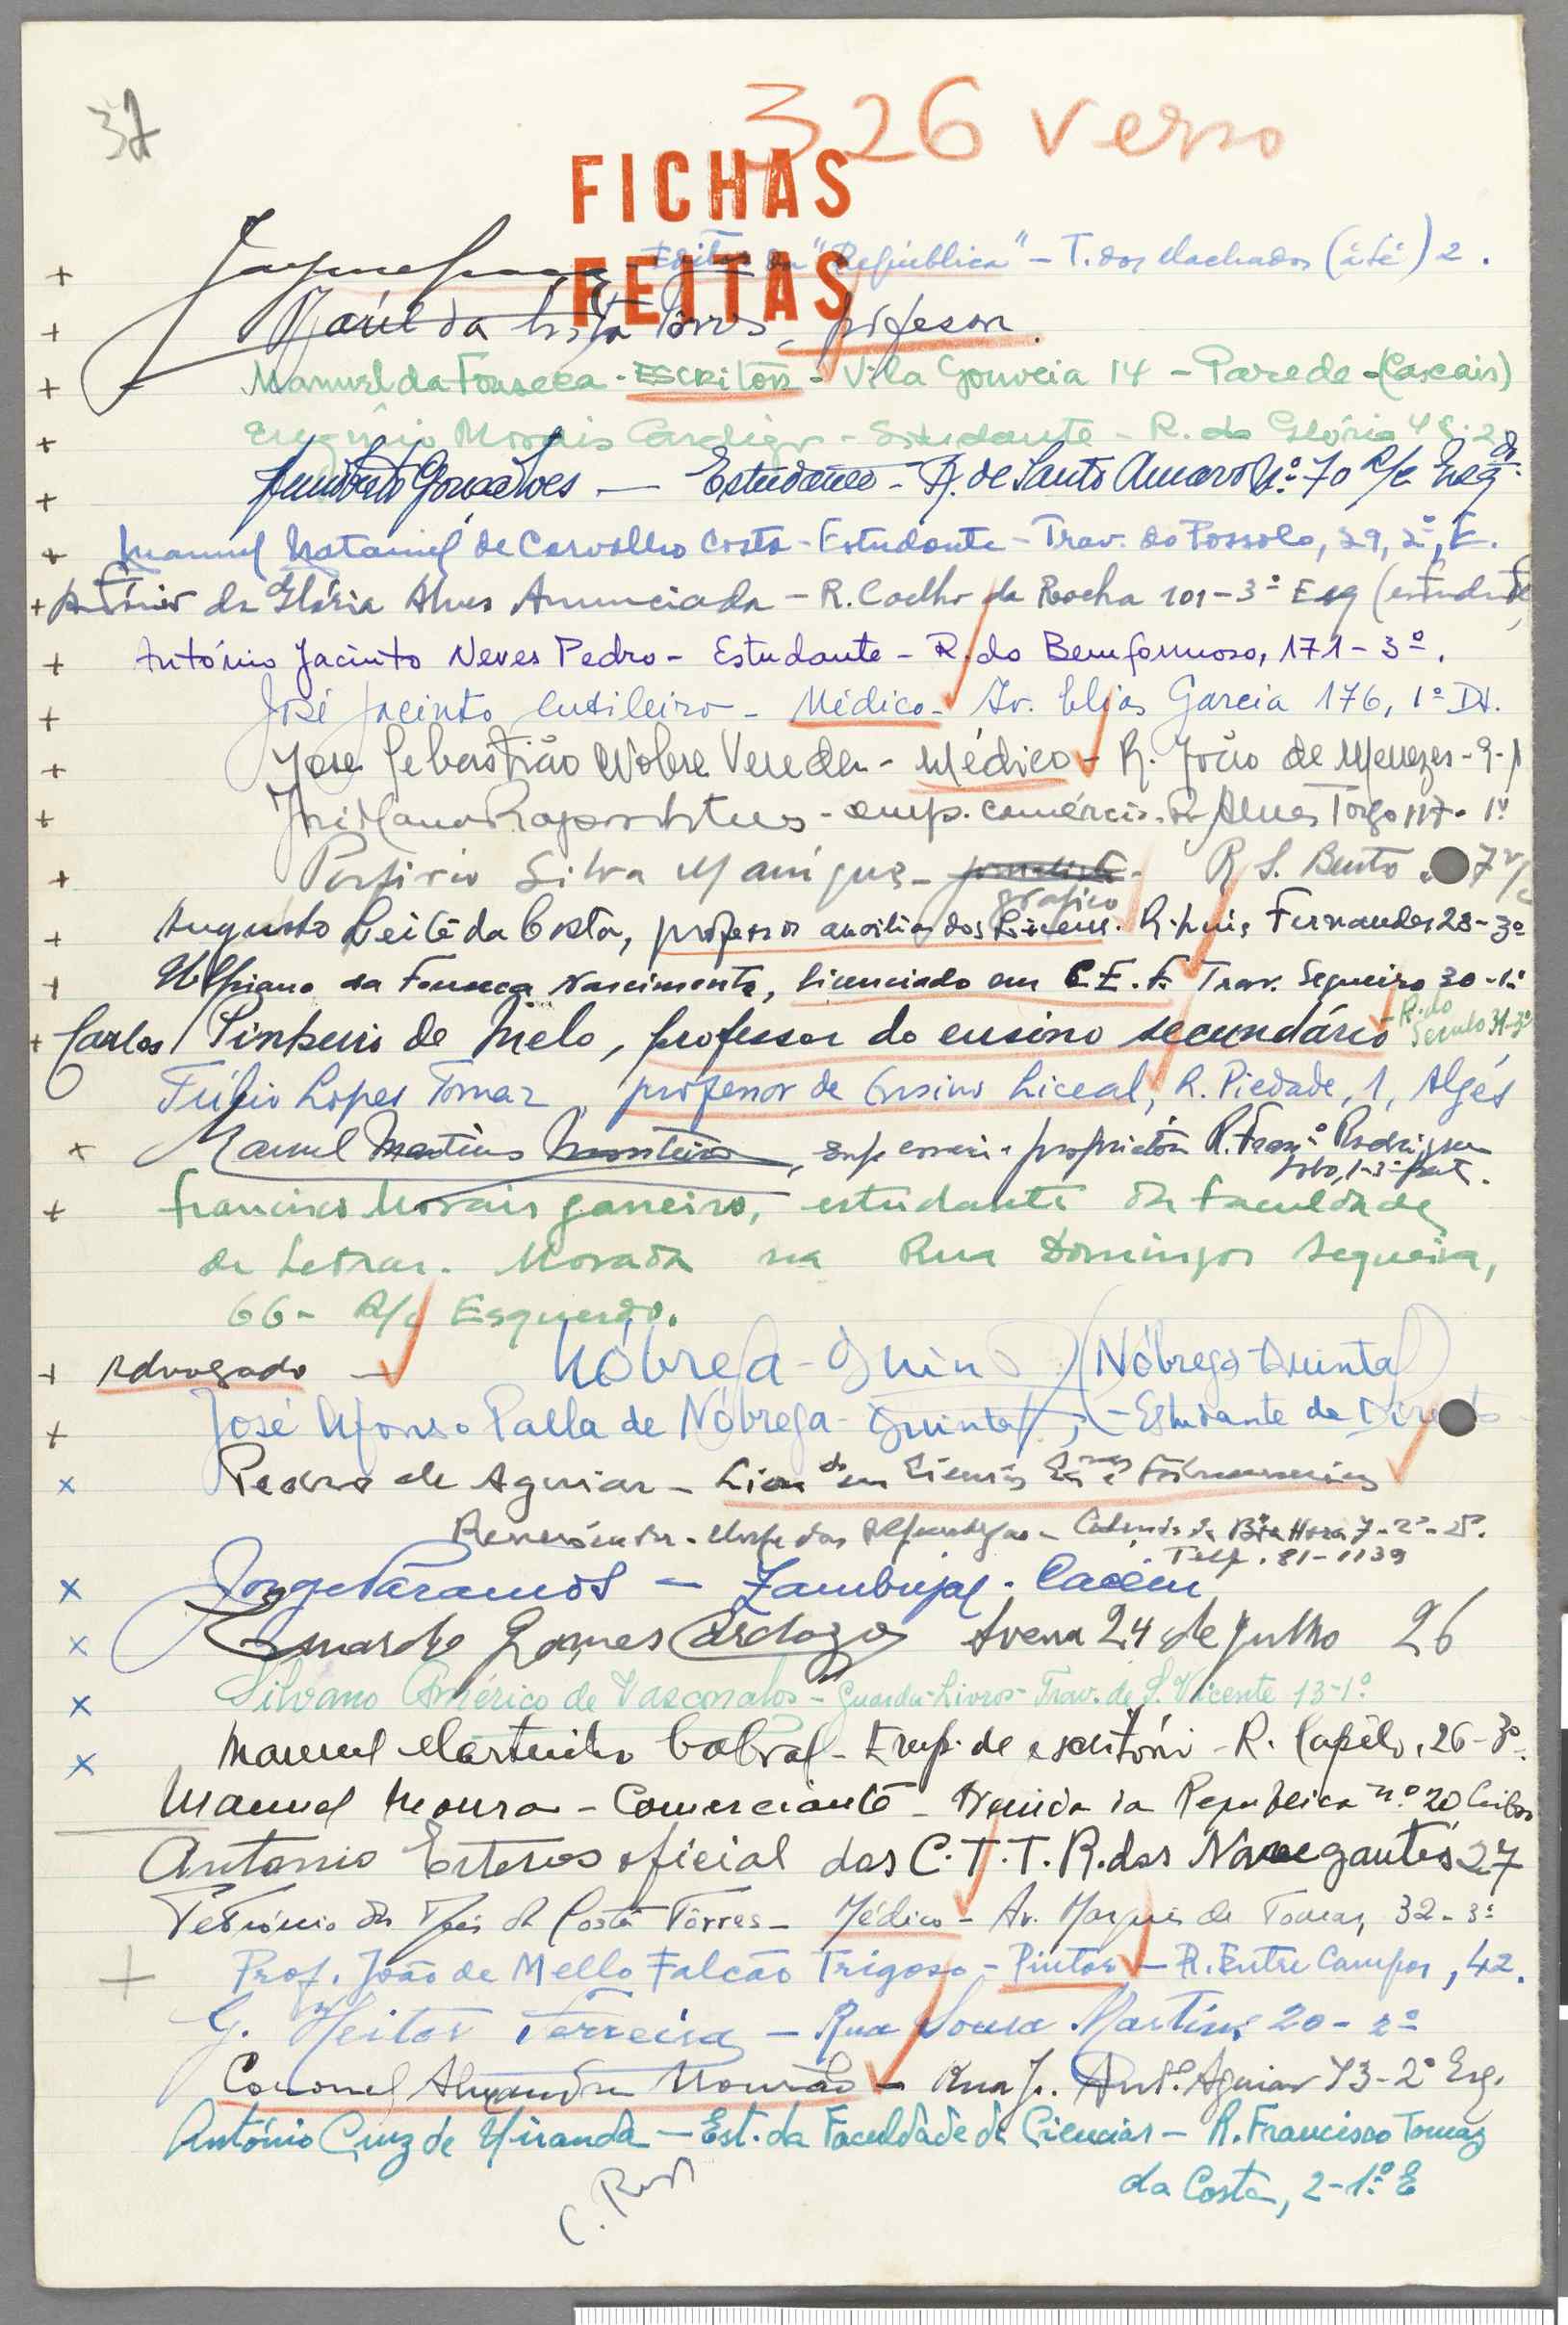 37
326 verso
FICHAS
FEITAS
Editor da "República" - T. dos Machados (até) 2.
Raúl da Costa Torres, professor.
Manuel da Fonseca - Escritor - Vila Gouveia 14 - Parede - (Cascais)
Morais Cardigo - Estudante - R. da Glória
Humberto Gonçalves — Estudante - R. de Santo Amaro Nº 70 R/c Esq.
Manuel Nataniel de Carvalho Costa - Estudante - Trav. do Possolo, 29, 2º, E.
António da Glória Alves Anunciada - R. Coelho da Rocha 101 - 3º Esq (estudante)
António Jacinto Neves Pedro - Estudante - R. do Bemformoso, 171 - 3º.
José Jacinto - Médico - Av. Elias Garcia 176, 1º Dt.
José Sebastião Nobre Vereda - Médico - R. João de Menezes - 9 -
- emp. comércio - R. Alves Torgo 117 - 1º
Porfirio Silva - jornalista - R. S. Bento 7 r/c
grafico
Augusto Leite da Costa, professor auxiliar dos Liceus. R. Luis Fernandes 28 - 3º
Ulpiano da Fonseca Nascimento, licenciado em C.E.F. Trav. Sequeiro 30 - 1º
Carlos Pinheiro de Melo, professor do ensino secundário - R. do
Século 31-3º
Túlio Lopes Tomaz, professor de Ensino Liceal, R. Piedade, 1, Algés
Manuel Martins Monteiro, proprietário R. Franº Rodrigues
Lobo, 1-3º
Francisco Morais Janeiro, estudante da Faculdade
de Letras. Morada na Rua Domingos Sequeira,
66 - R/c Esquerdo.
Advogado - Nóbrega - Quintal (Nóbrega Quintal)
José Afonso Palla de Nóbrega - Quintal, - Estudante de Direito
Pedro de Aguiar - em
- 7 - 2º
Telf. 81-1139
Jorge Páramos - Zambujal - Cacém
Eduardo Gomes Cardozo Avena 24 de Julho 26
Silvano Américo de Vasconcelos - Guarda-Livros - Trav. de S. Vicente 13-1º
Manuel Martinho Cabral - Emp. de escritório - R. Capelo, 26 - 3º.
Manuel Moura - Comerciante - Avenida da Republica nº 20
Antonio Esteves oficial dos C.T.T. R. dos Navegantes 27
da Costa Torres - Médico - Av. Marquês de Tomar, 32 - 3º
Prof. João de Mello Falcão Trigoso - Pintor - R. Entre Campos, 42.
G. Heitor Ferreira - Rua Sousa Martins 20 - 2º
Coronel Alexandre Mourão - Rua J. Antº Aguiar 73 - 2º Esq.
António Cruz de Miranda - Est. da Faculdade de Ciencias - R. Francisco Tomaz
da Costa, 2 - 1º E